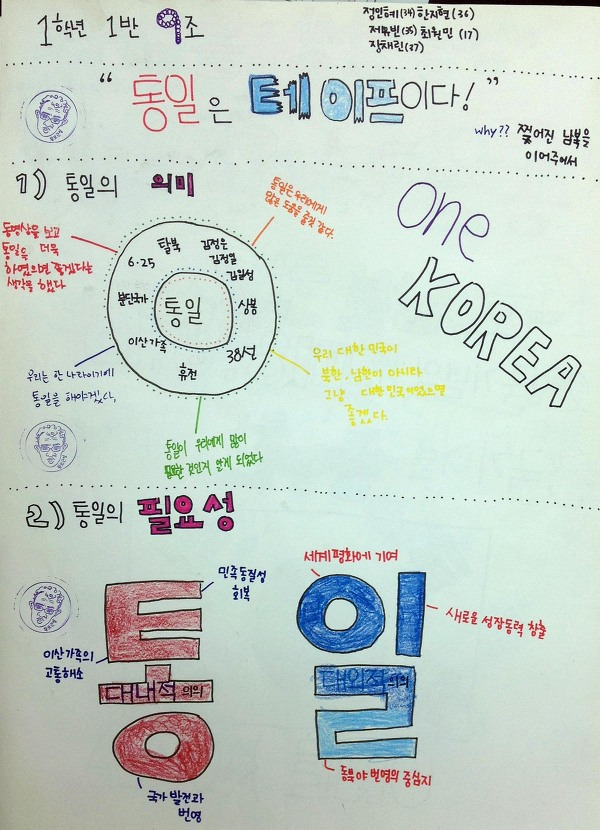 1학년 1반 9조
정민혜(34) 한지현(36)
저유빈(35) 최원민(17)
장채린(37)
"통일은 테이프이다!"
why?? 찢어진 남북을
이어주어서
1) 통일의 의미
동영상을 보고
통일을 더욱
하였으면 좋겠다는
생각을 했다
통일은 우리에게
많은 도움을 줄것 같다.
one
KOREA
탈북
김정은
김정일
김일성
6·25
분단국가
통일
상봉
이산가족
38선
휴전
우리는 한 나라이기에
통일을 해야겠다.
우리 대한민국이
북한, 남한이 아니라
그냥 대한민국이었으면
좋겠다.
통일이 우리에게 많이
필요한 것인지 알게 되었다
2) 통일의 필요성
민족동질성
회복
세계평화에 기여
통일
새로운 성장동력 창출
이산가족의
고통해소
대내적 의의
대외적 의의
국가 발전과
번영
동북아 번영의 중심지